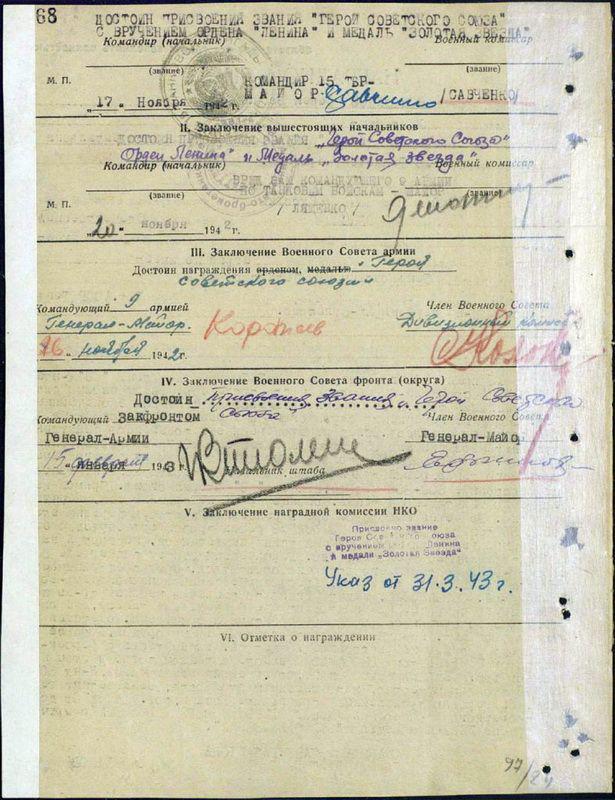 68
ДОСТОИН ПРИСВОЕНИЯ ЗВАНИЯ "ГЕРОЙ СОВЕТСКОГО СОЮЗА"
С ВРУЧЕНИЕМ ОРДЕНА "ЛЕНИНА" И МЕДАЛЬ "ЗОЛОТАЯ ЗВЕЗДА"
Командир (начальник) Военный комиссар
(звание) (звание)
М. П. КОМАНДИР 15 ТБР-
МАЙОР Савченко /САВЧЕНКО/
"17" Ноября 1942 г.
II. Заключение вышестоящих начальников
"Герой Советского Союза"
Орден Ленина" и Медаль "Золотая звезда"
Командир (начальник) Военный комиссар
ВРИД ЗАМ КОМАНДУЮЩЕГО 9 АРМИИ
(звание) ПО ТАНКОВЫМ ВОЙСКАМ (звание)
М. П.
"20" ноября 1942 г.
III. Заключение Военного Совета армии
Достоин награждения орденом, медалью "Герой
Советского союза"
Командующий 9 армией Член Военного Совета
Генерал-Майор Дивизионный
"26" ноября 1942 г.
IV. Заключение Военного Совета фронта (округа)
Достоин Присвоения Звания Герой Советская
Союза"
Командующий Закфронтом Член Военного Совета
Генерал-Армии Генерал-Майор
"15" января 1943 Начальник штаба
V. Заключение наградной комиссии НКО
Присвоено звание
Героя Союза
с вручением Ленина
и медали "Золотая Звезда"
Указ от 31.3.43 г.
VI. Отметка о награждении
97/24